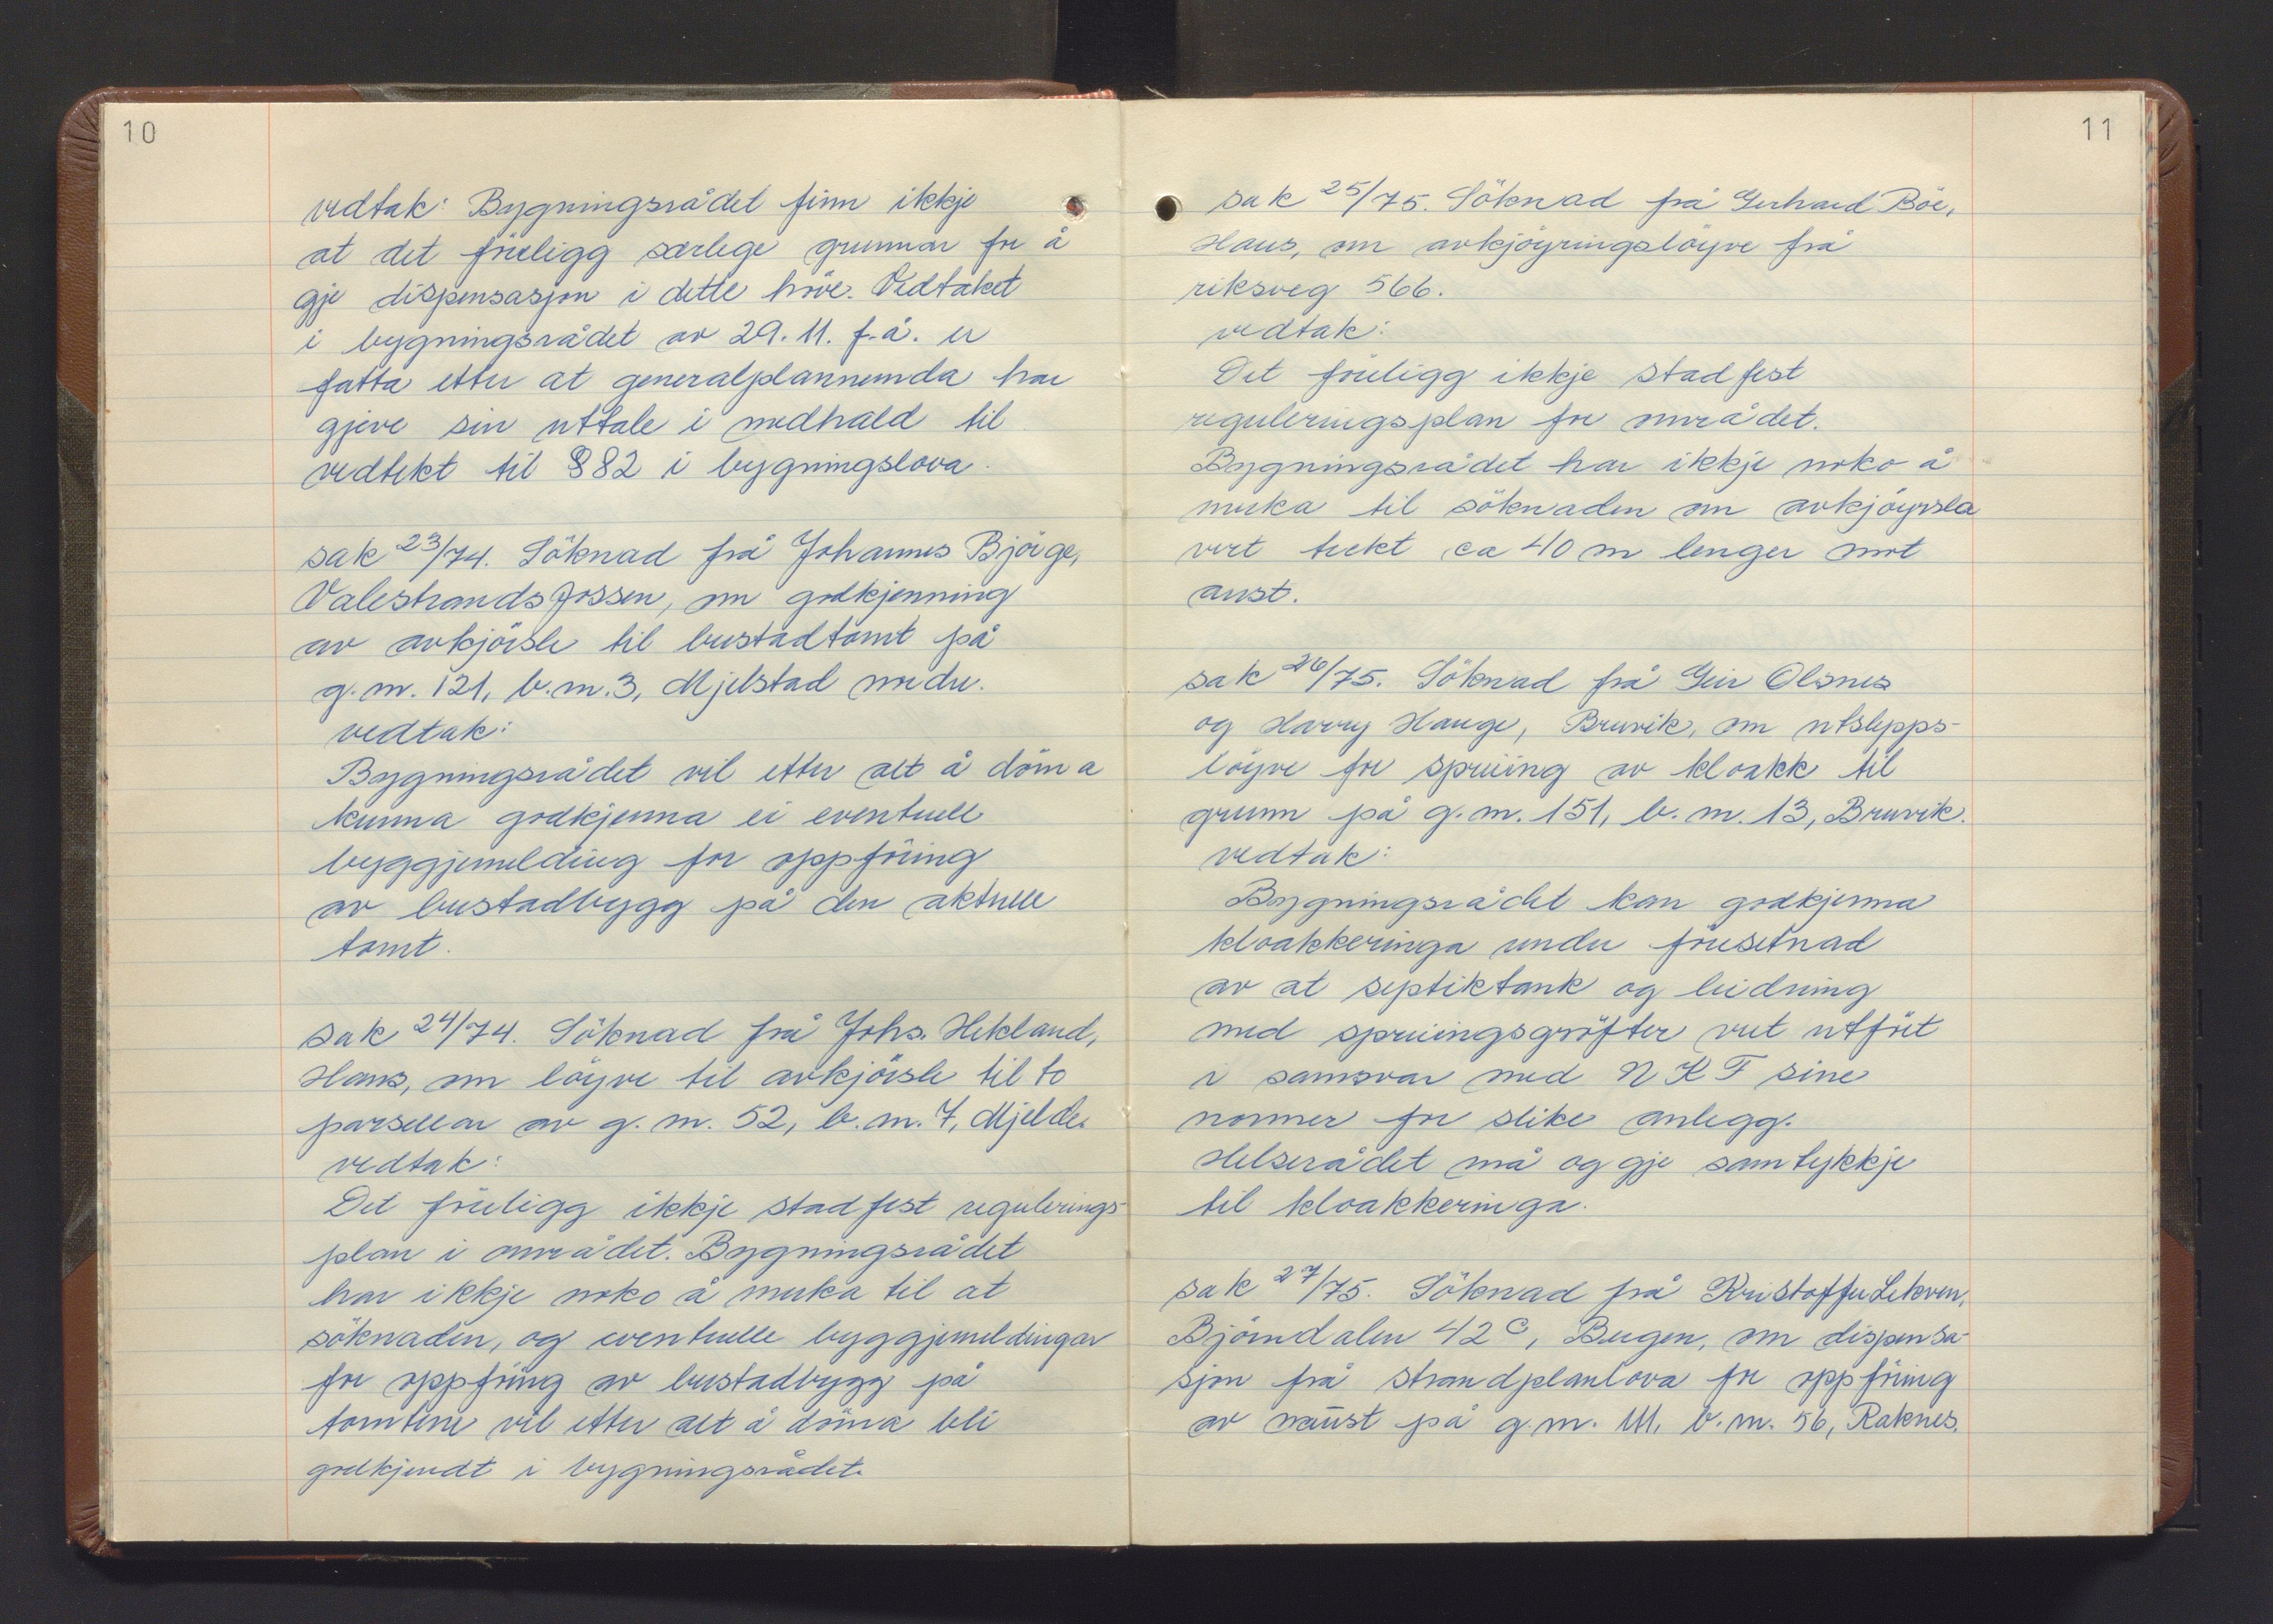 10
vedtak: Bygningsrådet finn ikkje
at det föreligg særlege grunnar for å
gje dispensasjon i dette höve. Vedtaket
i bygningsrådet av 29.11. f.å. er
fatta etter at generalplannemnda har
gjeve sin uttale i medhald til
vedtekt til § 82 i bygningslova.
sak 23/74. Söknad frå Johannes Bjørge,
Valestrandsfossen, om godkjenning
av avkjörsle til bustadtomt på
g.nr. 121, b.nr. 3, Mjelstad nedre.
vedtak:
Bygningsrådet vil etter alt å döma
kunna godkjenna ei eventuell
byggjemelding for oppföring
av bustadbygg på den aktuelle
tomt.
sak 24/74. Söknad frå Johs. Hekland,
Haus, om löyve til avkjörsle til to
parsellar av g.nr. 52, b.nr. 7, Mjelde.
vedtak:
Det föreligg ikkje stadfest regulerings-
plan i området. Bygningsrådet
har ikkje noko å merka til at
söknaden, og eventuelle byggjemeldingar
for oppföring av bustadbygg på
tomtene vil etter alt å döma bli
godkjendt i bygningsrådet.
11
sak 25/75. Söknad frå Gerhard Böe,
Haus, om avkjöyringslöyve frå
riksveg 566.
vedtak:
Det föreligg ikkje stadfest
reguleringsplan for området.
Bygningsrådet har ikkje noko å
merka til söknaden om avkjöyrsla
vert trekt ca 40 m lenger mot
aust.
sak 26/75. Söknad frå Geir Olsnes
og Harry Hauge, Bruvik, om utslepps-
löyve for spreiing av kloakk til
grunn på g.nr. 151, b.nr. 13, Bruvik.
vedtak:
Bygningsrådet kan godkjenna
kloakkeringa under föresetnad
av at septiktank og leidning
med spreiingsgröfter vert utfört
i samsvar med NKF sine
normer for slike anlegg.
Helserådet må og gje samtykkje
til kloakkeringa.
sak 27/75. Söknad frå Kristoffer Lekven,
Björndalen 42 C, Bergen, om dispensa-
sjon frå strandplanlova for oppföring
av naust på g.nr. 111, b.nr. 56, Raknes.